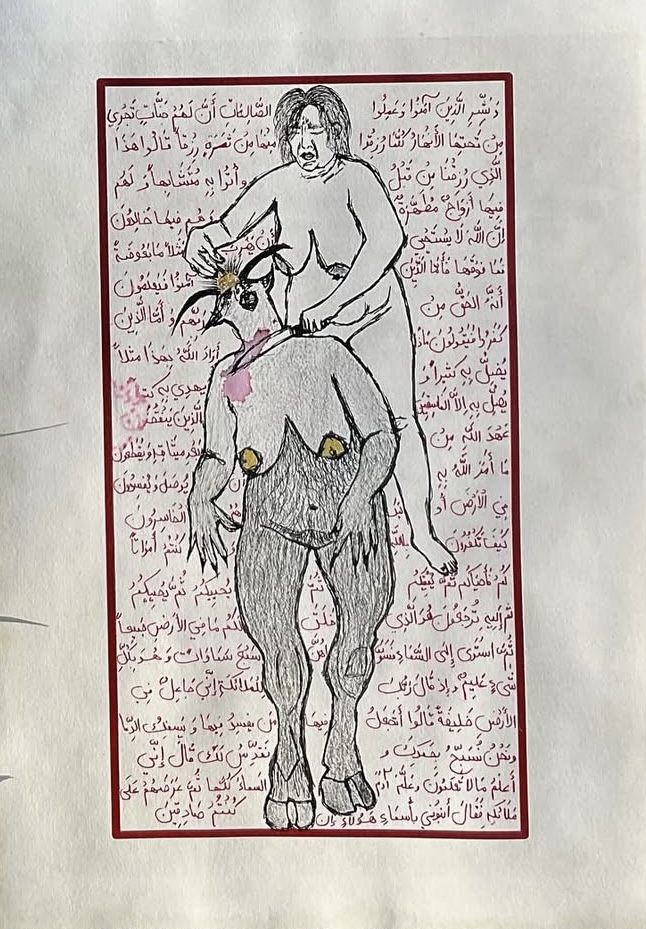 وَبَشِّرِ الَّذِينَ آمَنُوا وَعَمِلُوا الصَّالِحَاتِ أَنَّ لَهُمْ جَنَّاتٍ تَجْرِي
مِن تَحْتِهَا الْأَنْهَارُ كُلَّمَا رُزِقُوا مِنْهَا مِن ثَمَرَةٍ رِزْقاً قَالُوا هَذَا
الَّذِي رُزِقْنَا مِن قَبْلُ وَأُتُوا بِهِ مُتَشَابِهاً وَلَهُمْ
فِيهَا أَزْوَاجٌ مُطَهَّرَةٌ وَهُم فِيهَا خَالِدُونَ
إِنَّ اللَّهَ لَا يَسْتَحْيِي أَن
مَثَلاً مَا بَعُوضَةً فَمَا فَوْقَهَا فَأَمَّا الَّذِينَ
آمَنُوا فَيَعْلَمُونَ أَنَّهُ الْحَقُّ مِن
رَبِّهِمْ وَأَمَّا الَّذِينَ كَفَرُوا فَيَقُولُونَ مَاذَا
أَرَادَ اللَّهُ بِهَذَا مَثَلاً يُضِلُّ بِهِ كَثِيراً وَ
يَهْدِي بِهِ يُضِلُّ بِهِ إِلَّا الْفَاسِقِينَ
الَّذِينَ يَنْقُضُونَ عَهْدَ اللَّهِ مِن
مِيثَاقِهِ وَيَقْطَعُونَ مَا أَمَرَ اللَّهُ بِهِ
يُوصَلَ وَيُفْسِدُونَ فِي الْأَرْضِ أُو
الْخَاسِرُونَ كَيْفَ تَكْفُرُونَ بِاللَّهِ
كُنْتُمْ أَمْوَاتاً
فَأَحْيَاكُمْ ثُمَّ يُمِيتُكُمْ ثُمَّ يُحْيِيكُمْ
ثُمَّ إِلَيْهِ تُرْجَعُونَ هُوَ الَّذِي خَلَقَ لَكُمْ مَا فِي الْأَرْضِ جَمِيعاً
ثُمَّ اسْتَوَى إِلَى السَّمَاءِ سَبْعَ سَمَاوَاتٍ وَهُوَ بِكُلِّ
شَيْءٍ عَلِيمٌ وَإِذْ قَالَ رَبُّكَ لِلْمَلَائِكَةِ إِنِّي جَاعِلٌ فِي
الْأَرْضِ خَلِيفَةً قَالُوا أَتَجْعَلُ فِيهَا مَن يُفْسِدُ فِيهَا وَيَسْفِكُ الدِّمَا
وَنَحْنُ نُسَبِّحُ بِحَمْدِكَ وَ نُقَدِّسُ لَكَ قَالَ إِنِّي
أَعْلَمُ مَالَا تَعْلَمُونَ وَعَلَّمَ آدَمَ الأسماءَ كُلَّهَا ثُمَّ عَرَضَهُمْ عَلَى
مَلَائِكَةِ فَقَالَ أَنْبِئُونِي بِأَسْمَاءِ هَؤُلَاءِ إِن كُنْتُمْ صَادِقِينَ